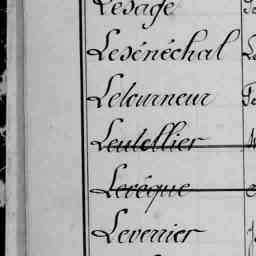 Lesage
Lesénéchal
Letourneur
Leutellier
Levêque
Leverrier